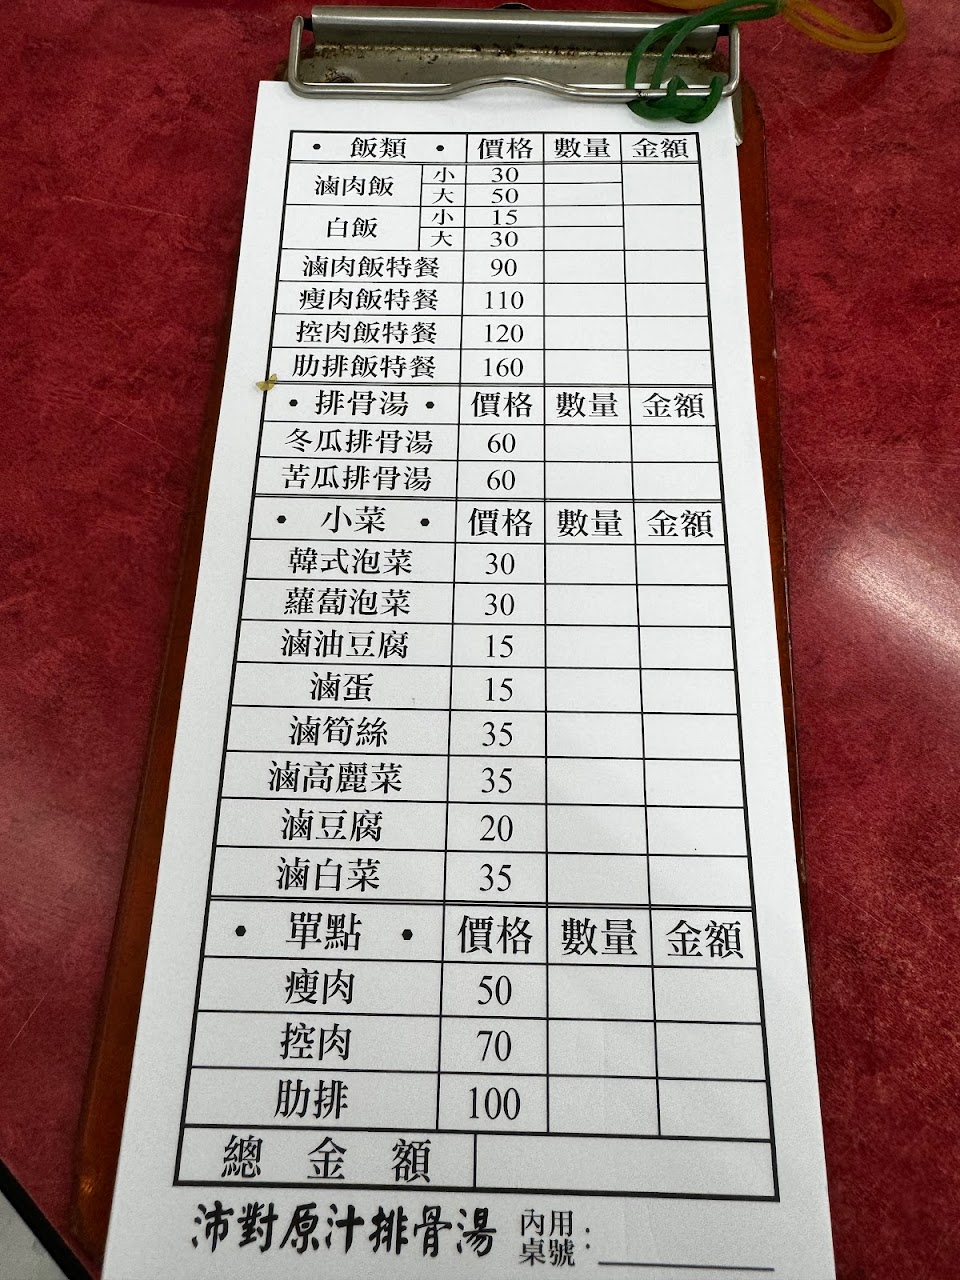 • 飯類 • 價格 數量 金額
滷肉飯 小 30
大 50
白飯 小 15
大 30
滷肉飯特餐 90
瘦肉飯特餐 110
控肉飯特餐 120
肋排飯特餐 160
• 排骨湯 • 價格 數量 金額
冬瓜排骨湯 60
苦瓜排骨湯 60
• 小菜 • 價格 數量 金額
韓式泡菜 30
蘿蔔泡菜 30
滷油豆腐 15
滷蛋 15
滷筍絲 35
滷高麗菜 35
滷豆腐 20
滷白菜 35
• 單點 • 價格 數量 金額
瘦肉 50
控肉 70
肋排 100
總金額
沛對原汁排骨湯 內用桌號：